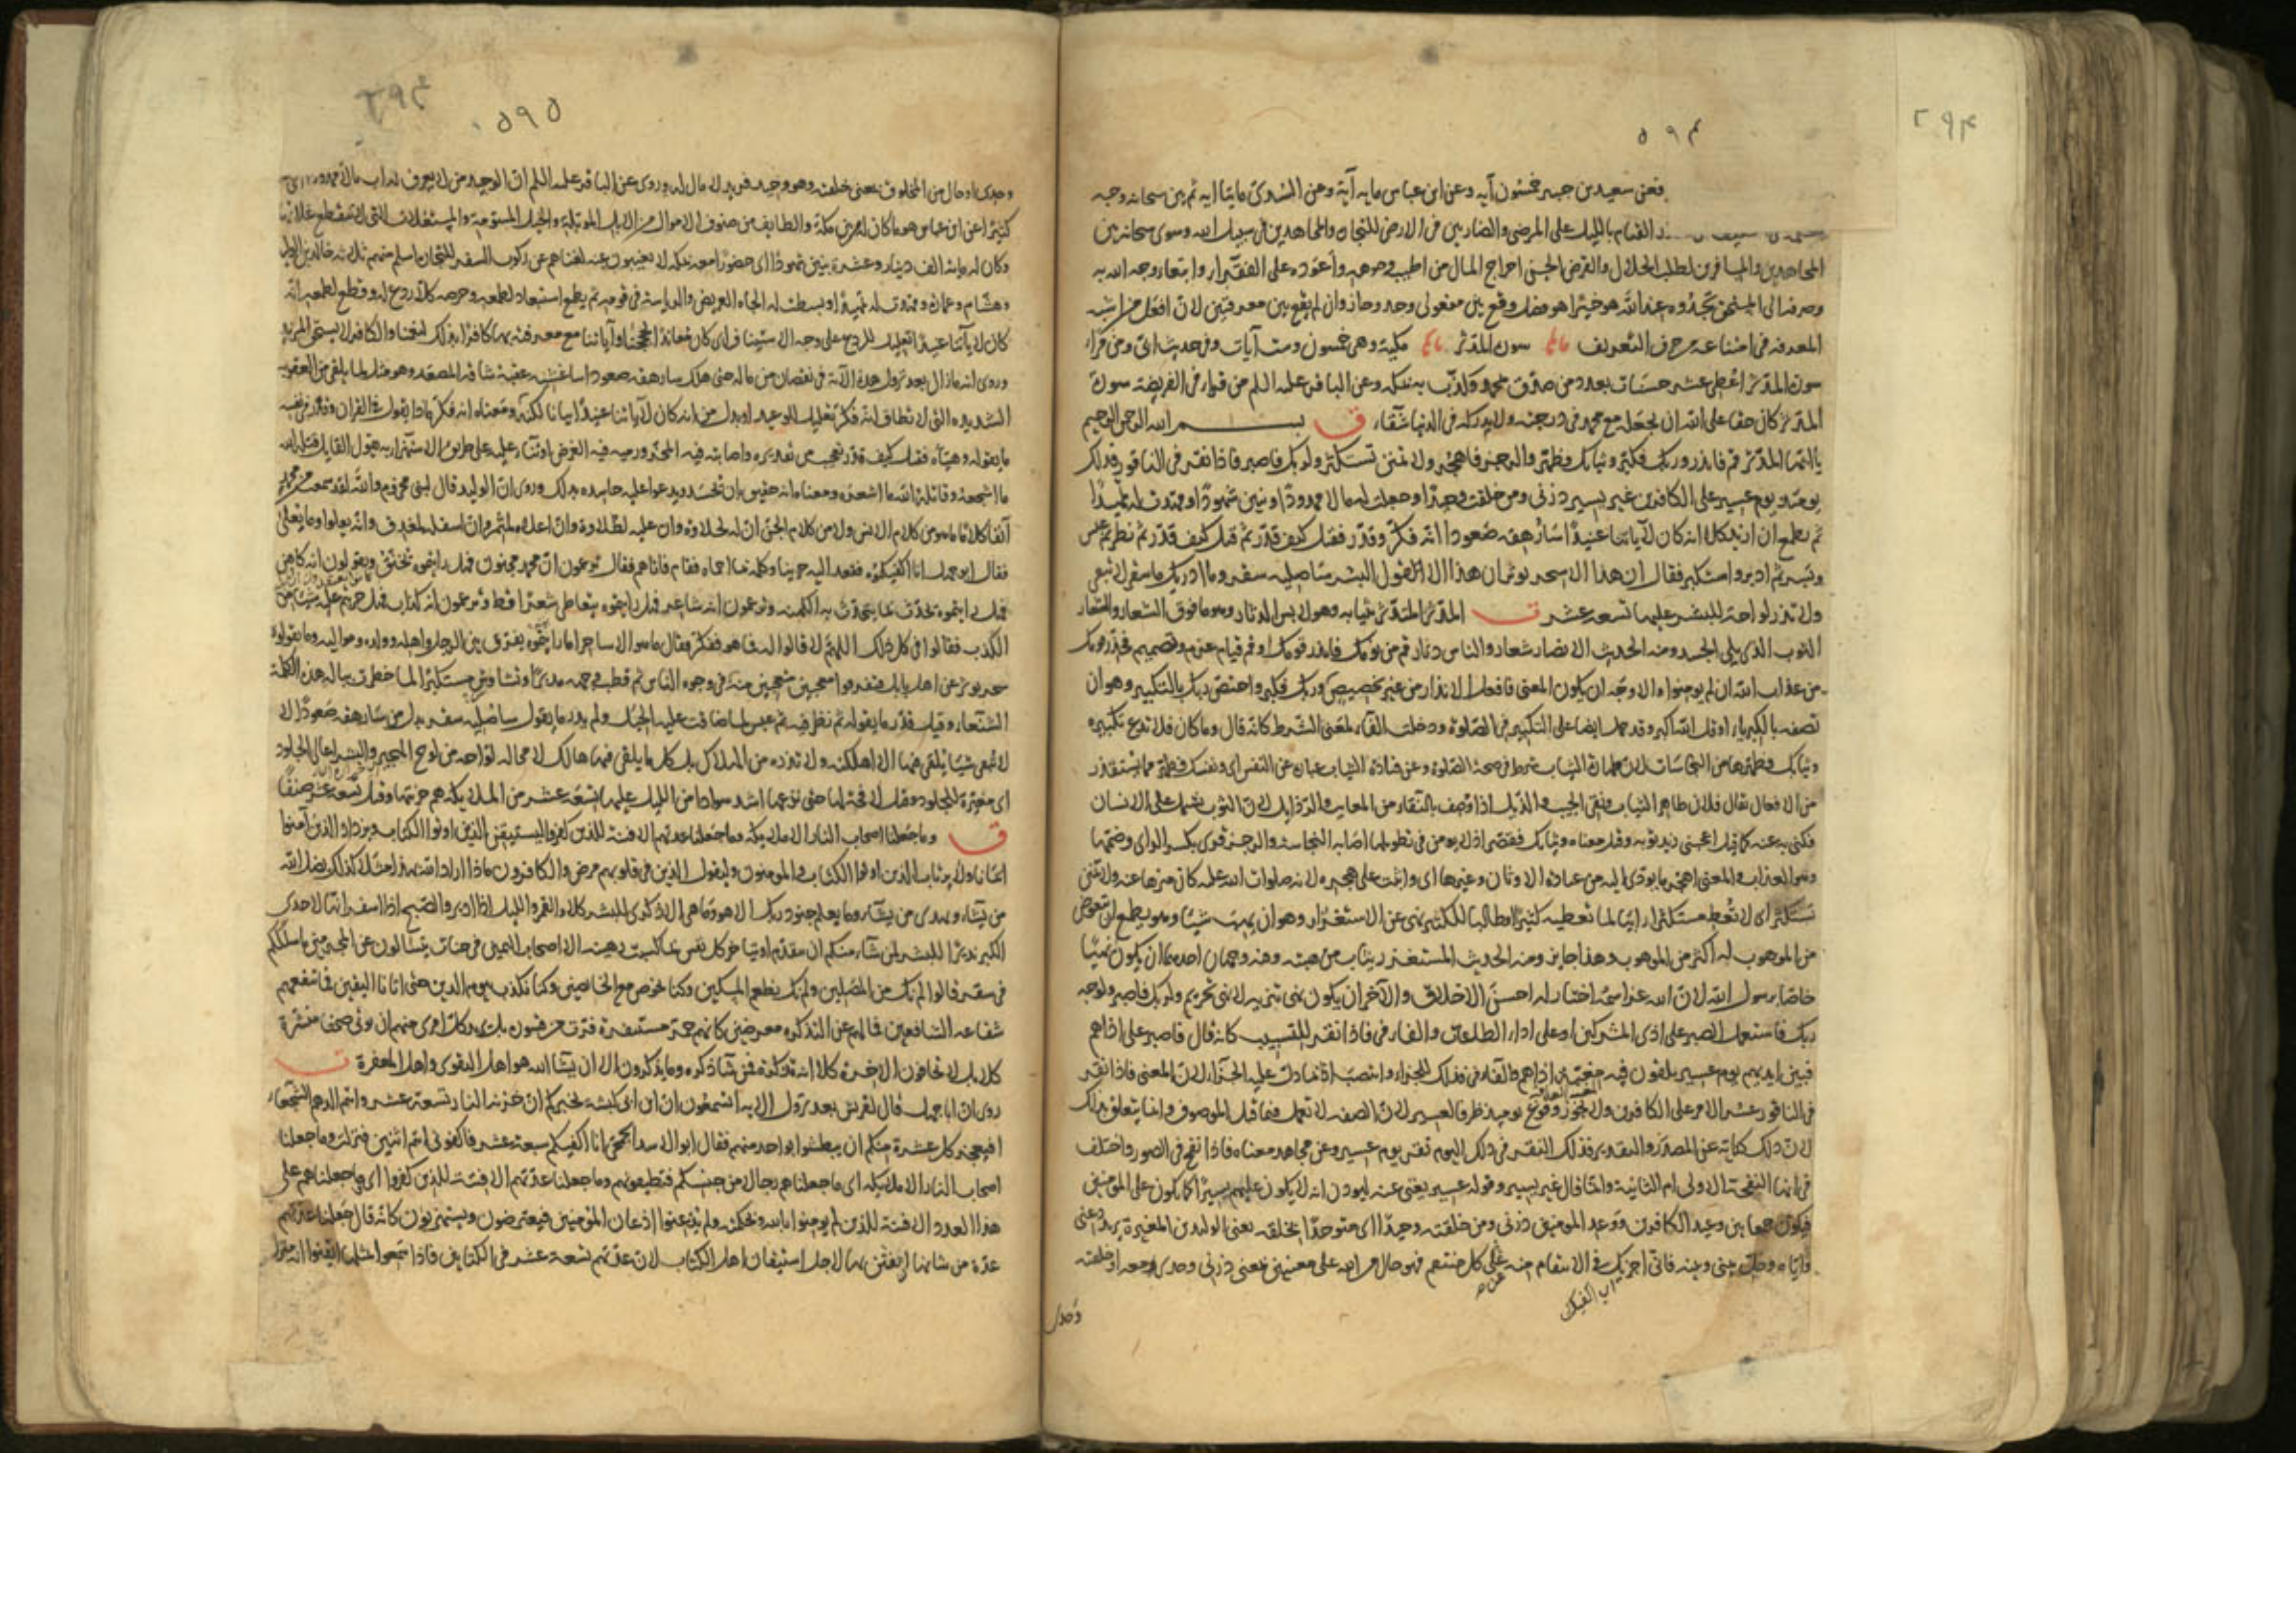 ٥٩٤
٢٩٤
فعن سعيد بن جبير خمسون آيه وعن ابن عباس مايه آية وعن السّدى مايتا ايه ثم بين سبحانه وجه
القيام بالليل على المرضى والضاربين فى الارض للتجاره والمجاهدين فى سبيل الله وسوى سبحانه بين
المجاهدين والمسافرين لطلب الحلال والقرض الحسن اخراج المال من اطيب وجوهه واعوده على الفقراء وابتغاء وجه الله به
وصرفه الى المستحق تجدوه عند الله هو خيرا هو فصل وقع بين مفعولى وجد وجاز وان لم يقع بين معرفتين لان افعل من اشبه
المعرفه فى امتناعه من حرف التعريف سورة المدثر مكية وهى خمسون وست آيات وفى حديث ابى ومن قراء
سورة المدثر اعطى عشر حسنات بعدد من صدق بمحمد وكذّب به بمكه وعن الباقر عليه السلم من قراء فى الفريضه سورة
المدثر كان حقا على الله ان يجعله مع محمد فى درجته ولا يدركه فى الدنيا شقاء ق بسم الله الرحمن الرحيم
يا ايها المدثر قم فانذر وربك فكبر وثيابك فطهر والرجز فاهجر ولا تمنن تستكثر ولربك فاصبر فاذا نقر فى الناقور فذلك
يومئذ يوم عسير على الكافرين غير يسير ذرنى ومن خلقت وحيدا وجعلت له مالا ممدودا وبنين شهودا ومهدت له تمهيدا
ثم يطمع ان ازيد كلا انه كان لآياتنا عنيدا سأرهقه صعودا انه فكر وقدر فقتل كيف قدر ثم قتل كيف قدر ثم نظر ثم عبس
وبسر ثم ادبر واستكبر فقال ان هذا الا سحر يوثر ان هذا الا قول البشر ساصليه سقر وما ادريك ما سقر لا تبقى
ولا تذر لواحة للبشر عليها تسعه عشر ت المدثر المتدثر بثيابه وهو لابس الدثار وهو ما فوق الشعار والشعار
الثوب الذى يلى الجسد ومنه الحديث الانصار شعار والناس دثار قم من نومك فانذر قومك او قم قيام عزم وتصميم فحذر قومك
من عذاب الله ان لم يومنوا والاوجه ان يكون المعنى فافعل الانذار من غير تخصيص وربك فكبر واختص ربك بالتكبير وهو ان
تصفه بالكبرياء او قل الله اكبر وقد حمل ايضا على التكبير فى الصلوة ودخلت الفاء لمعنى الشرط كانه قال وما كان فلا تدع تكبيره
وثيابك فطهرها من النجاسات لان طهارة الثياب شرط فى صحة الصلوة وعن قتادة الثياب عبارة عن النفس اى ونفسك فطهر مما يستقذر
من الافعال يقال فلان طاهر الثياب ونقى الجيب والذيل اذا وصف بالنقاء من المعايب والرذايل لان الثوب يشتمل على الانسان
فكنى به عنه كما قيل اعجبنى زيد ثوبه وقيل معناه وثيابك فقصر اذ لا يومن فى تطويلها اصابه النجاسه والرجز قرى بكسر الراى وضمها
وهو العذاب والمعنى اهجر ما يودى اليه من عبادة الاوثان وغيرها اى واثبت على هجره لانه صلوات الله عليه كان منزها عنه ولا تمنن
تستكثر اى لا تعط مستكثرا راييا لما تعطيه كثيرا وطالبا للكثير نهى عن الاستغزار وهو ان يهب شيئا وهو يطمع ان يتعوض
من الموهوب له اكثر من الموهوب وهذا جايز ومنه الحديث المستغزر يثاب من هبته وفيه وجهان احدهما ان يكون نهيا
خاصا برسول الله لان الله عز اسمه اختار له احسن الاخلاق والآخر ان يكون نهى تنزيه لا نهى تحريم ولربك فاصبر ولوجه
ربك فاستعمل الصبر على اذى المشركين او على اداء الطاعات والفاء فى فاذا نقر للتسبيب كانه قال فاصبر على اذاهم
فبين ايديهم يوم عسير يلقون فيه مغبة اذاهم والفاء فى فذلك للجزاء وانتصب اذا بما دل عليه الجزاء لان المعنى فاذا نقر
فى الناقور عسر الامر على الكافرين ولا يجوز وقوع يوميذ ظرفا لعسير لان الصفه لا تعمل فيما قبل الموصوف وانما يتعلق بذلك
لان ذلك كناية عن المصدر والتقدير فذلك النقر فى ذلك اليوم نقر يوم عسير وعن مجاهد معناه فاذا نفخ فى الصور واختلف
فى انها النفخة الاولى ام الثانية وانما قال غير يسير وقوله عسير يغنى عنه ليوذن انه لا يكون عليهم يسيرا كما يكون على المومنين
فيكون جمعا بين وعيد الكافرين ووعد المومنين ذرنى ومن خلقته وحيدا اى متوحدا بخلقه يعنى الوليد بن المغيرة يريد دعنى
واياه وخل بينى وبينه فانى اجزيك فى الانتقام منه عن كل منتقم فهو حال من الله على معنيين بمعنى ذرنى وحدى معه او خلقته
وحدى
٥٩٥
وحدى او حال من المخلوق بمعنى خلقته وهو وحيد فريد لا مال له وروى عن الباقر عليه السلم ان الوحيد من لا يعرف له اب مالا ممدودا
كثيرا عن ابن عباس هو ما كان له بين مكة والطايف من صنوف الاموال من الابل الموبلة والخيل المسومة والمستغلات التى لا تنقطع غلاتها
وكان له ماية الف دينار وعشرة بنين شهودا اى حضورا معه بمكه لا يغيبون عنه لغناهم عن ركوب السفر للتجاره اسلم منهم ثلاثه خالد بن الوليد
وهشام وعمارة ومهدت له تمهيدا وبسطت له الجاه العريض والرياسة فى قومه ثم يطمع استبعاد لطمعه وحرصه كلا ردع له وقطع لطمعه انه
كان لآياتنا عنيدا تعليل للردع على وجه الاستيناف اى كان معاندا لحججنا وآياتنا مع معرفته بها كافرا بذلك لنعمنا والكافر لا يستحق المزيد
وروى انه ما زال بعد نزول هذه الآية فى نقصان من ماله حتى هلك سارهقه صعودا ساغشيه عقبة شاقة المصعد وهو مثل لما يلقى من العقوبه
الشديده التى لا تطاق انه فكر تعليل للوعيد او بدل من انه كان لآياتنا عنيدا بيانا لكنه ومعناه انه فكر ماذا يقول فى القران وقدر فى نفسه
ما يقوله وهيأه فقتل كيف قدر تعجيب من تقديره واصابته فيه المحز ورميه فيه الغرض او ثناء عليه على طريق الاستهزاء به يقول القايل قتله الله
ما اشجعه وقاتله الله ما اشعره ومعناه انه حقيق بان يحسد ويدعو عليه حاسده بذلك وروى ان الوليد قال لبنى مخزوم والله لقد سمعت من محمد
آنفا كلاما ما هو من كلام الانس ولا من كلام الجن ان له لحلاوة وان عليه لطلاوة وان اعلاه لمثمر وان اسفله لمغدق وانه يعلوا وما يعلى
فقال ابو جهل انا اكفيكموه فقعد اليه حزينا وكلمه بما احماه فقام فاتاهم فقال تزعمون ان محمدا مجنون فهل رايتموه يخنق ويقولون انه كاهن
فهل رايتموه يتحدث بما يتحدث به الكهنه وتزعمون انه شاعر فهل رايتموه يتعاطى شعرا قط وتزعمون انه كذاب فهل جربتم عليه شيئا من
الكذب فقالوا فى كل ذلك اللهم لا قالوا له فما هو ففكر فقال ما هو الا ساحر اما رايتموه يفرق بين الرجل واهله وولده ومواليه وما يقوله
سحر يوثر عن اهل بابل فتفرقوا معجبين متعجبين منه فى وجوه الناس ثم قطب وجهه مدبرا وتشاوس مستكبرا لما خطرت بباله هذه الكلمة
الشنعاء وقيل قدر ما يقوله ثم نظر فيه ثم عبس لما ضاقت عليه الحيل ولم يدر ما يقول ساصليه سقر بدل من سارهقه صعودا لا
لا تبقى شيئا يلقى فيها الا اهلكته ولا تذره من الهلاك بل كل ما يلقى فيها هالك لا محاله لواحه من لوح الهجير والبشر اعالى الجلود
اى مغيرة للجلود وقيل لافحة لها حتى تدعها اشد سوادا من الليل عليها تسعة عشر من الملايكه هم خزنتها وقيل تسعة عشر صنفا
ق وما جعلنا اصحاب النار الا ملايكه وما جعلنا عدتهم الا فتنة للذين كفروا ليستيقن الذين اوتوا الكتاب ويزداد الذين آمنوا
ايمانا ولا يرتاب الذين اوتوا الكتاب والمومنون وليقول الذين فى قلوبهم مرض والكافرون ماذا اراد الله بهذا مثلا كذلك يضل الله
من يشاء ويهدى من يشاء وما يعلم جنود ربك الا هو وما هى الا ذكرى للبشر كلا والقمر والليل اذا ادبر والصبح اذا اسفر انها لاحدى
الكبر نذيرا للبشر لمن شاء منكم ان يتقدم او يتاخر كل نفس بما كسبت رهينه الا اصحاب اليمين فى جنات يتسالون عن المجرمين ما سلككم
فى سقر قالوا لم نك من المصلين ولم نك نطعم المسكين وكنا نخوض مع الخايضين وكنا نكذب بيوم الدين حتى اتانا اليقين فما تنفعهم
شفاعه الشافعين فما لهم عن التذكره معرضين كانهم حمر مستنفرة فرت من قسورة بل يريد كل امرى منهم ان يوتى صحفا منشرة
كلا بل لا يخافون الاخرة كلا انه تذكرة فمن شا ذكره وما يذكرون الا ان يشا الله هو اهل التقوى واهل المغفرة ت
روى ان ابا جهل قال لقريش بعد نزول الايه اتسمعون ان ابن ابى كبشة يخبركم ان خزنة النار تسعة عشر وانتم الدهم الشجعاء
افيعجز كل عشرة منكم ان يبطشوا بواحد منهم فقال ابو الاسد الجمحى انا اكفيكم سبعة عشر فاكفونى انتم اثنين فنزلت وما جعلنا
اصحاب النار الا ملايكه اى ما جعلناهم رجالا من جنسكم فتطيقونهم وما جعلنا عدتهم الا فتنة للذين كفروا اى وما جعلناهم على
هذا العدد الا فتنة للذين لم يومنوا بالله وبحكمته ولم يذعنوا اذعان المومنين فيعترضون ويستهزيون كانه قال جعلنا عدتهم
عدة من شانها ان يفتتن بها لاجل استيقان اهل الكتاب لان عدتهم تسعة عشر فى الكتابين فاذا سمعوا بمثلها ايقنوا انه منزل